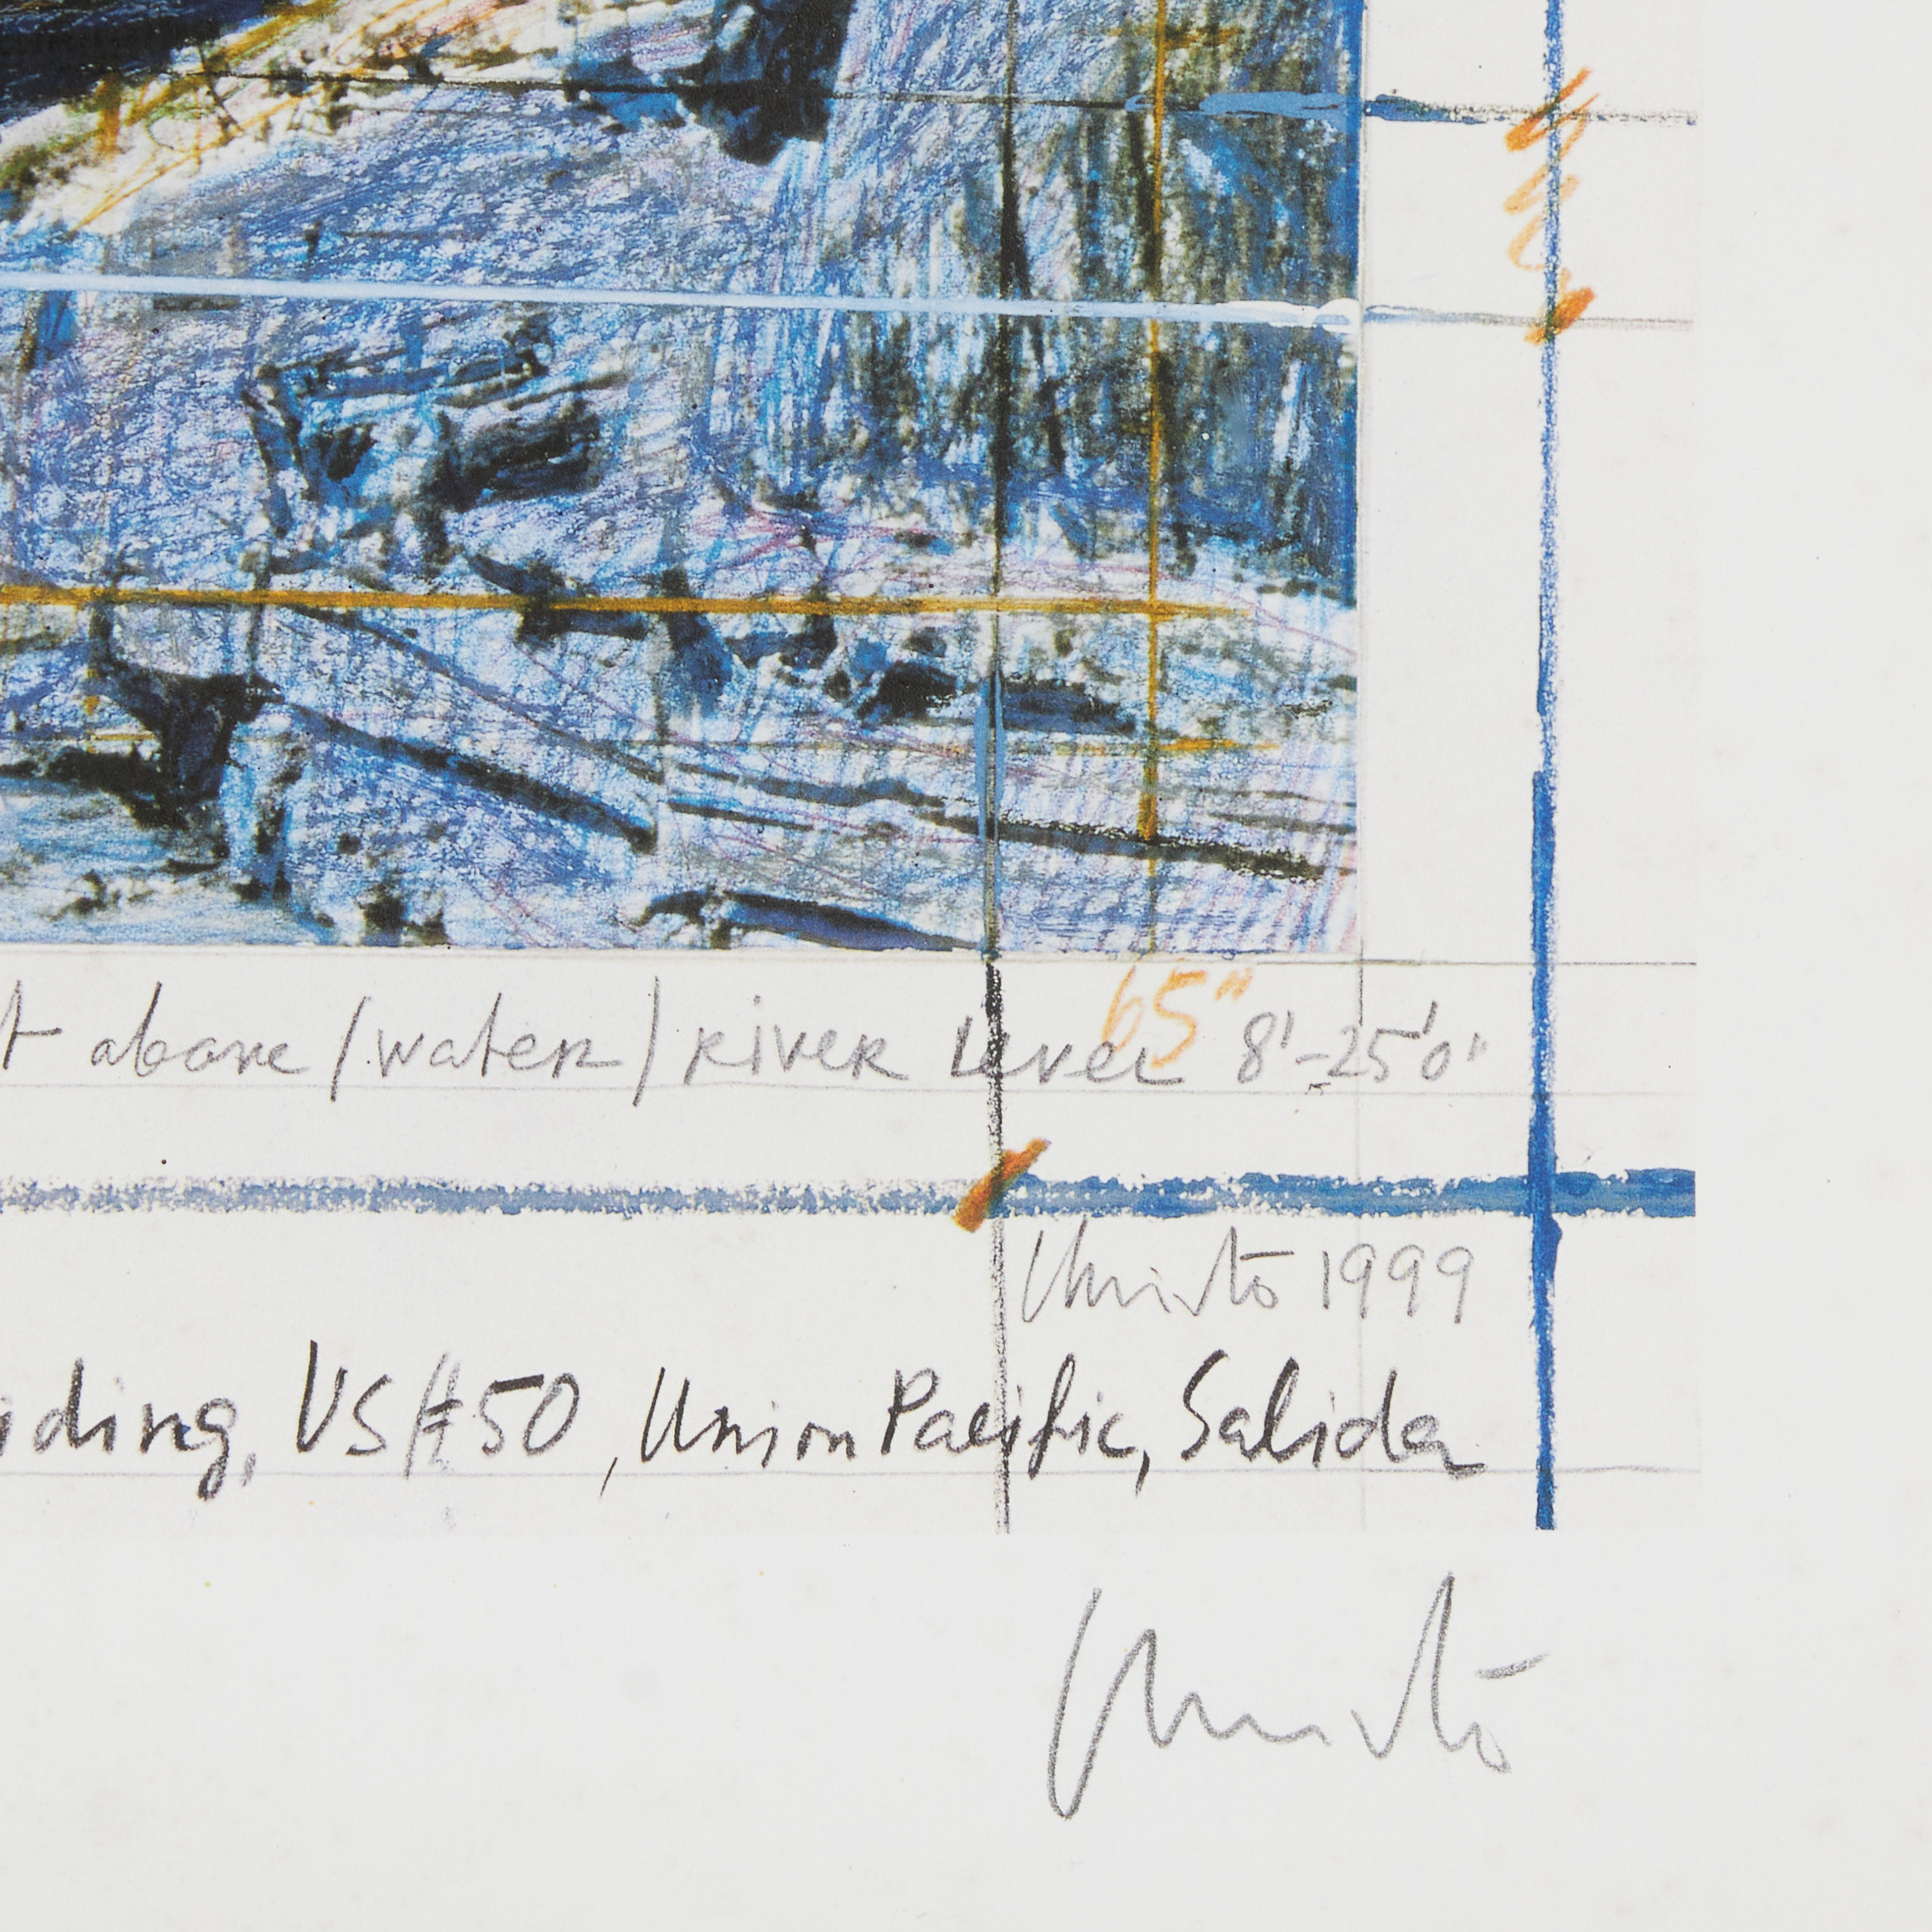 t above (water) river level 8'-25'0"
65"
Christo 1999
iding, US #50, Union Pacific, Salida
Christo